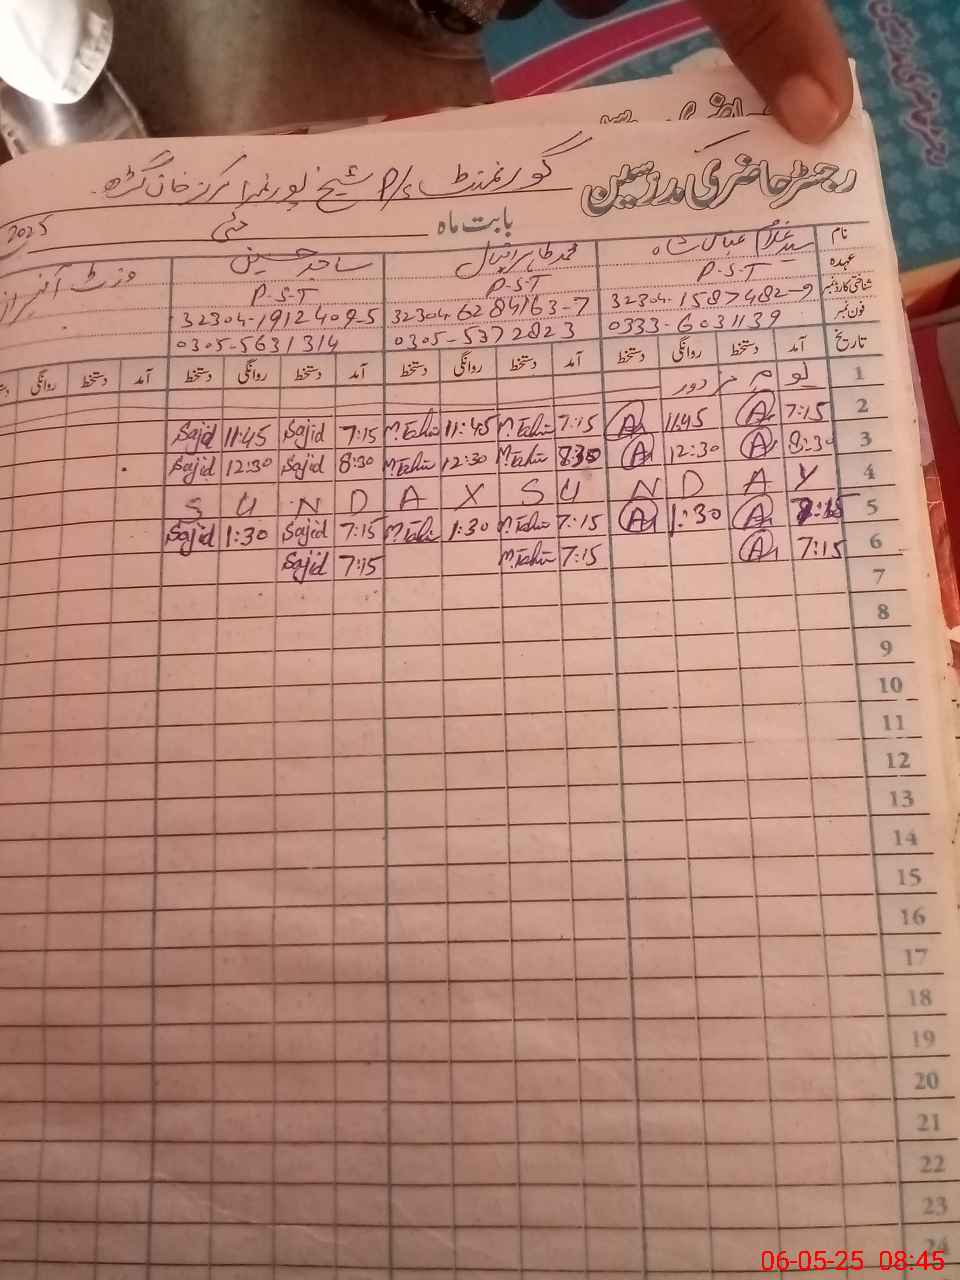 رجسٹر حاضری مدرسین گورنمنٹ P/S شیخ پور نمبر 1 مرکز خان گڑھ
بابت ماہ مئی 2025
نام سید غلام عباس شاہ محمد طاہر اقبال ساجد حسین وزٹ آفیسرز
عہدہ P.S.T P.S.T P.S.T
شناختی کارڈ نمبر 32304-1587482-9 32304-6284163-7 32304-1912409-5
فون نمبر 0333-6031139 0305-5372823 0305-5631314
تاریخ آمد دستخط روانگی دستخط آمد دستخط روانگی دستخط آمد دستخط روانگی دستخط آمد دستخط روانگی
1 یوم مزدور
2 7:15 A 11:45 A 7:15 M.Tahir 11:45 M.Tahir 7:15 Sajid 11:45 Sajid
3 8:30 A 12:30 A 8:30 M.Tahir 12:30 M.Tahir 8:30 Sajid 12:30 Sajid
4 S U N D A Y S U N D A Y
5 7:15 A 1:30 A 7:15 M.Tahir 1:30 M.Tahir 7:15 Sajid 1:30 Sajid
6 7:15 A 7:15 M.Tahir 7:15 Sajid
7
8
9
10
11
12
13
14
15
16
17
18
19
20
21
22
23
24
06-05-25 08:45